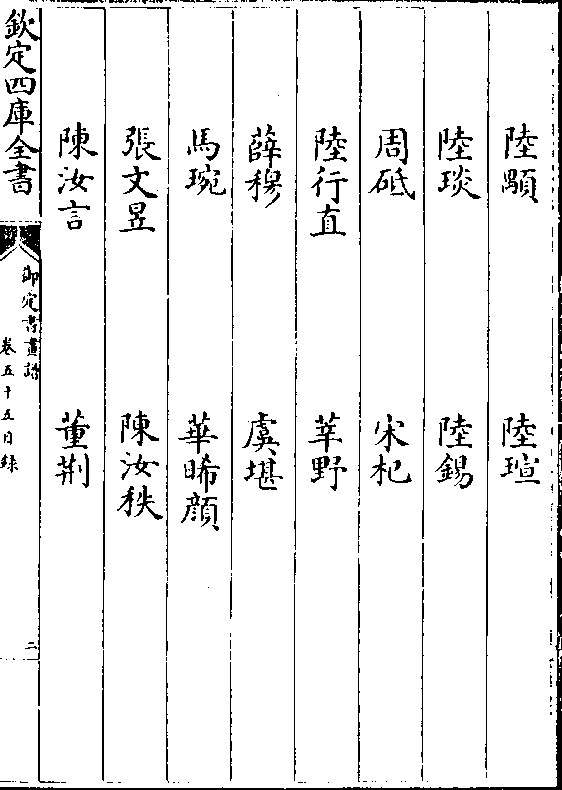 陸顒　陸瑄
陸琰　陸錫
周砥　宋杞
陸行直　莘野
薛穆　虞堪
馬琬　華晞顔
張文昱　陳汝秩
陳汝言　董荆
欽定四庫全書
御定書畫譜
卷五十五目録
二